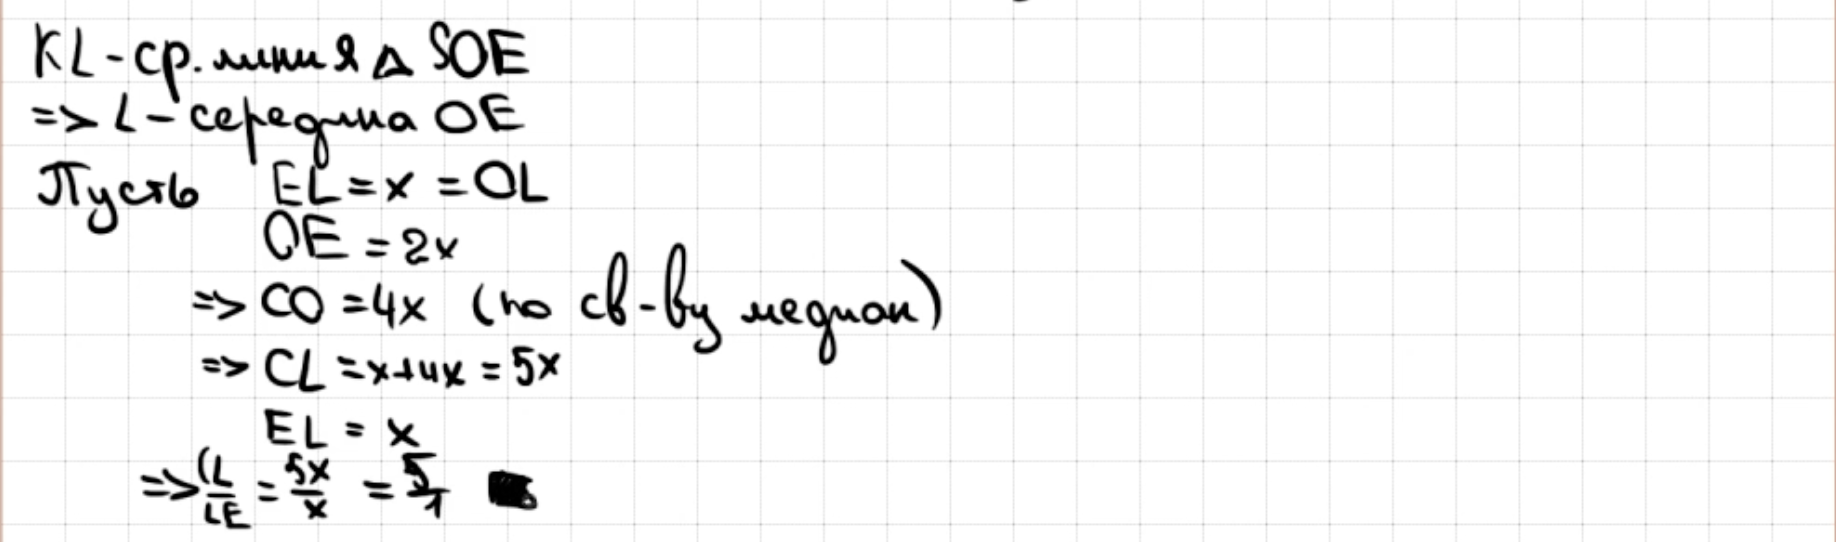 KL - ср. линия △ SOE
=> L - середина OE
Пусть EL = x = OL
OE = 2x
=> CO = 4x (по св-ву медиан)
=> CL = x+4x = 5x
EL = x
=> CL/LE = 5x/x = 5/1